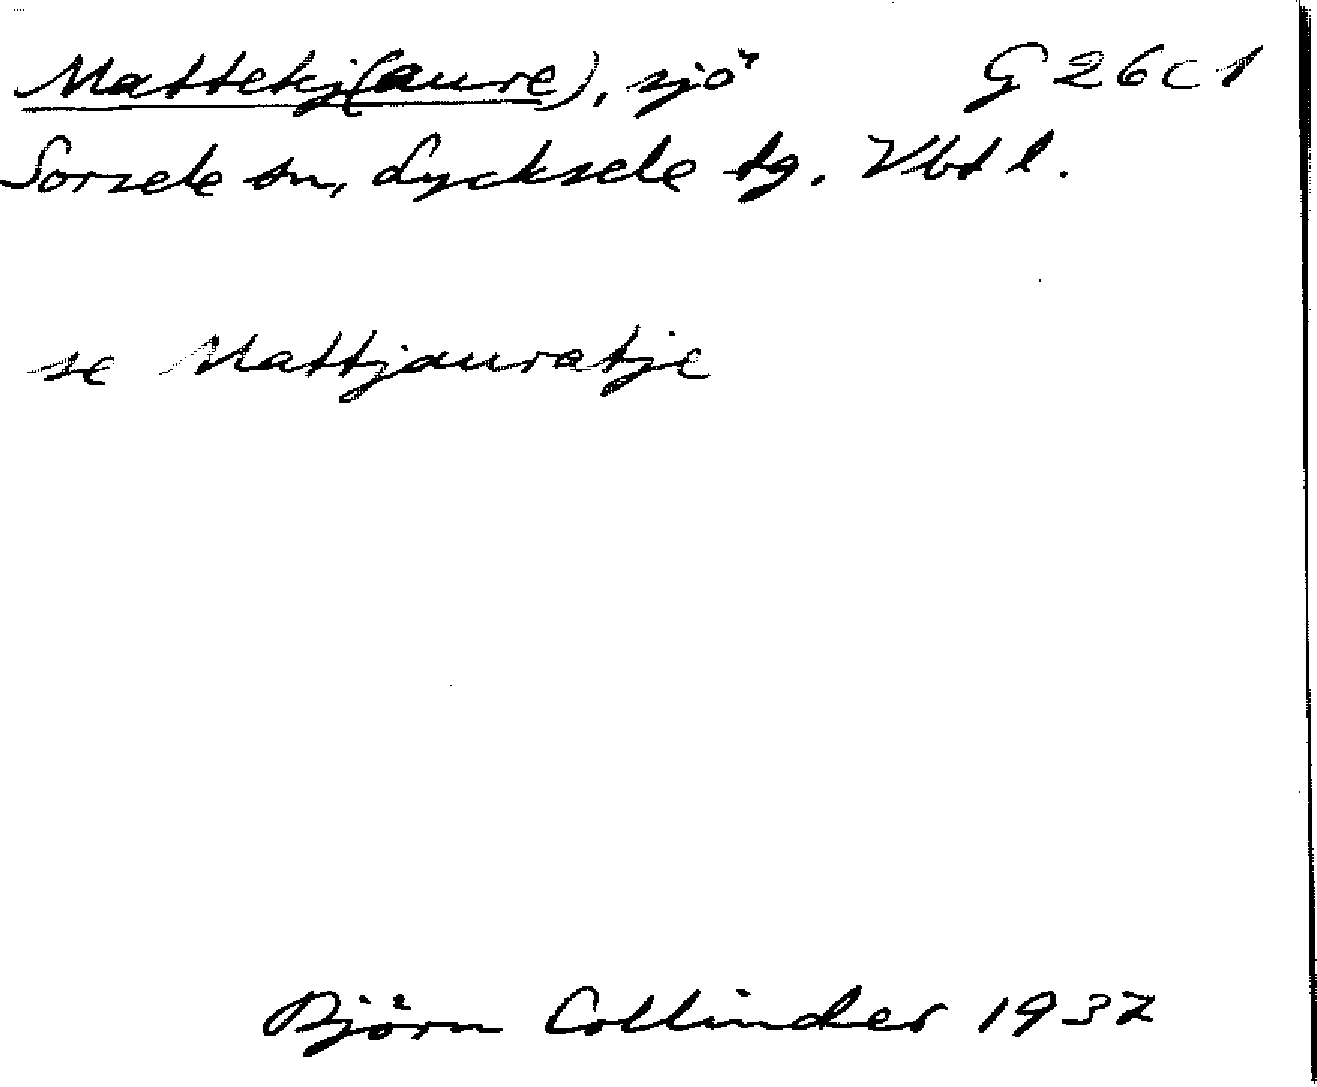 Mattekj(aure), sjö G 26 c 1
Sorsele sn, Lycksele tg. Vbtl.
se Mattjauratje
Björn Collinder 1937